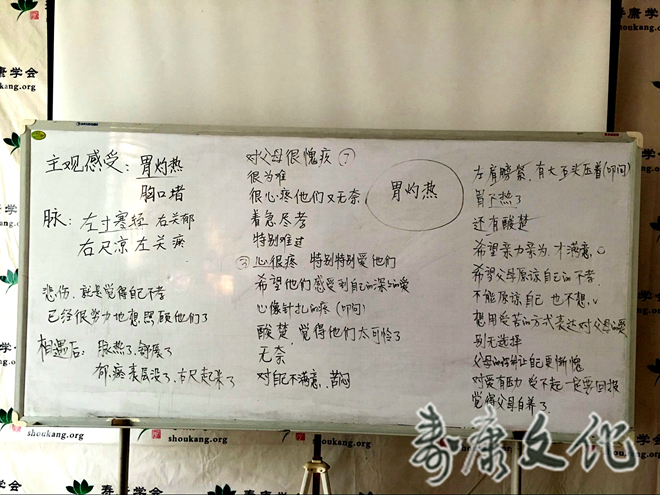 主观感受: 胃灼热
胸口堵
脉: 左寸寒经 右关郁
右尺凉 左关瘀
悲伤, 就是觉得自己不孝
已经很努力地想照顾他们了
相遇后: 腿热了、舒展了
郁、瘀表层没了、右尺起来了
对父母很愧疚 ⑦
很为难
很心疼他们又无奈
着急尽孝
特别难过
③ 心很疼 特别特别爱他们
希望他们感受到自己的深深的爱
心像针扎的疼 (叩问)
酸楚 觉得他们太可怜了
无奈
对自己不满意, 苦闷
胃灼热
左肩膀紧, 有大石头压着(叩问)
胃不热了
还有酸楚
希望亲力亲为, 才满意
希望父母原谅自己的不孝
不能原谅自己 也不想
想用受苦的方式表达对父母的爱
别无选择
父母的谅解让自己更惭愧
对爱有压力 受不起 一定要回报
觉得父母白养了
寿康学会
shoukang.org
寿康文化